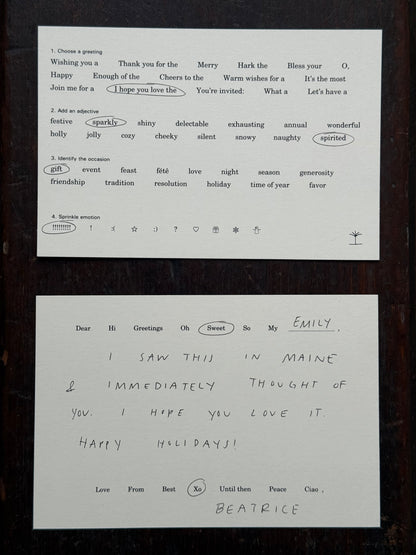 1. Choose a greeting
Wishing you a Thank you for the Merry Hark the Bless your O,
Happy Enough of the Cheers to the Warm wishes for a It's the most
Join me for a I hope you love the You're invited: What a Let's have a
2. Add an adjective
festive sparkly shiny delectable exhausting annual wonderful
holly jolly cozy cheeky silent snowy naughty spirited
3. Identify the occasion
gift event feast fête love night season generosity
friendship tradition resolution holiday time of year favor
4. Sprinkle emotion
!!!!!!!!! ! :( ☆ :) ? ♡ 🎁 ❄ ☃
Dear Hi Greetings Oh Sweet So My EMILY,
I SAW THIS IN MAINE
& IMMEDIATELY THOUGHT OF
YOU. I HOPE YOU LOVE IT.
HAPPY HOLIDAYS!
Love From Best Xo Until then Peace Ciao,
BEATRICE